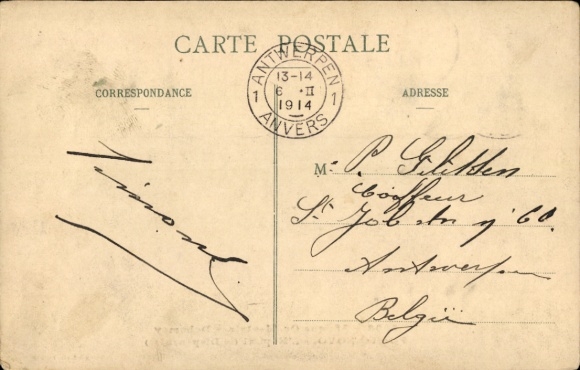 CARTE POSTALE
ANTWERPEN
13-14
6 · II
1 1
1914
ANVERS
CORRESPONDANCE
ADRESSE
Simont
M. P. Glikken
Coiffeur
St. Jobstr n° 60.
Antwerpen
België